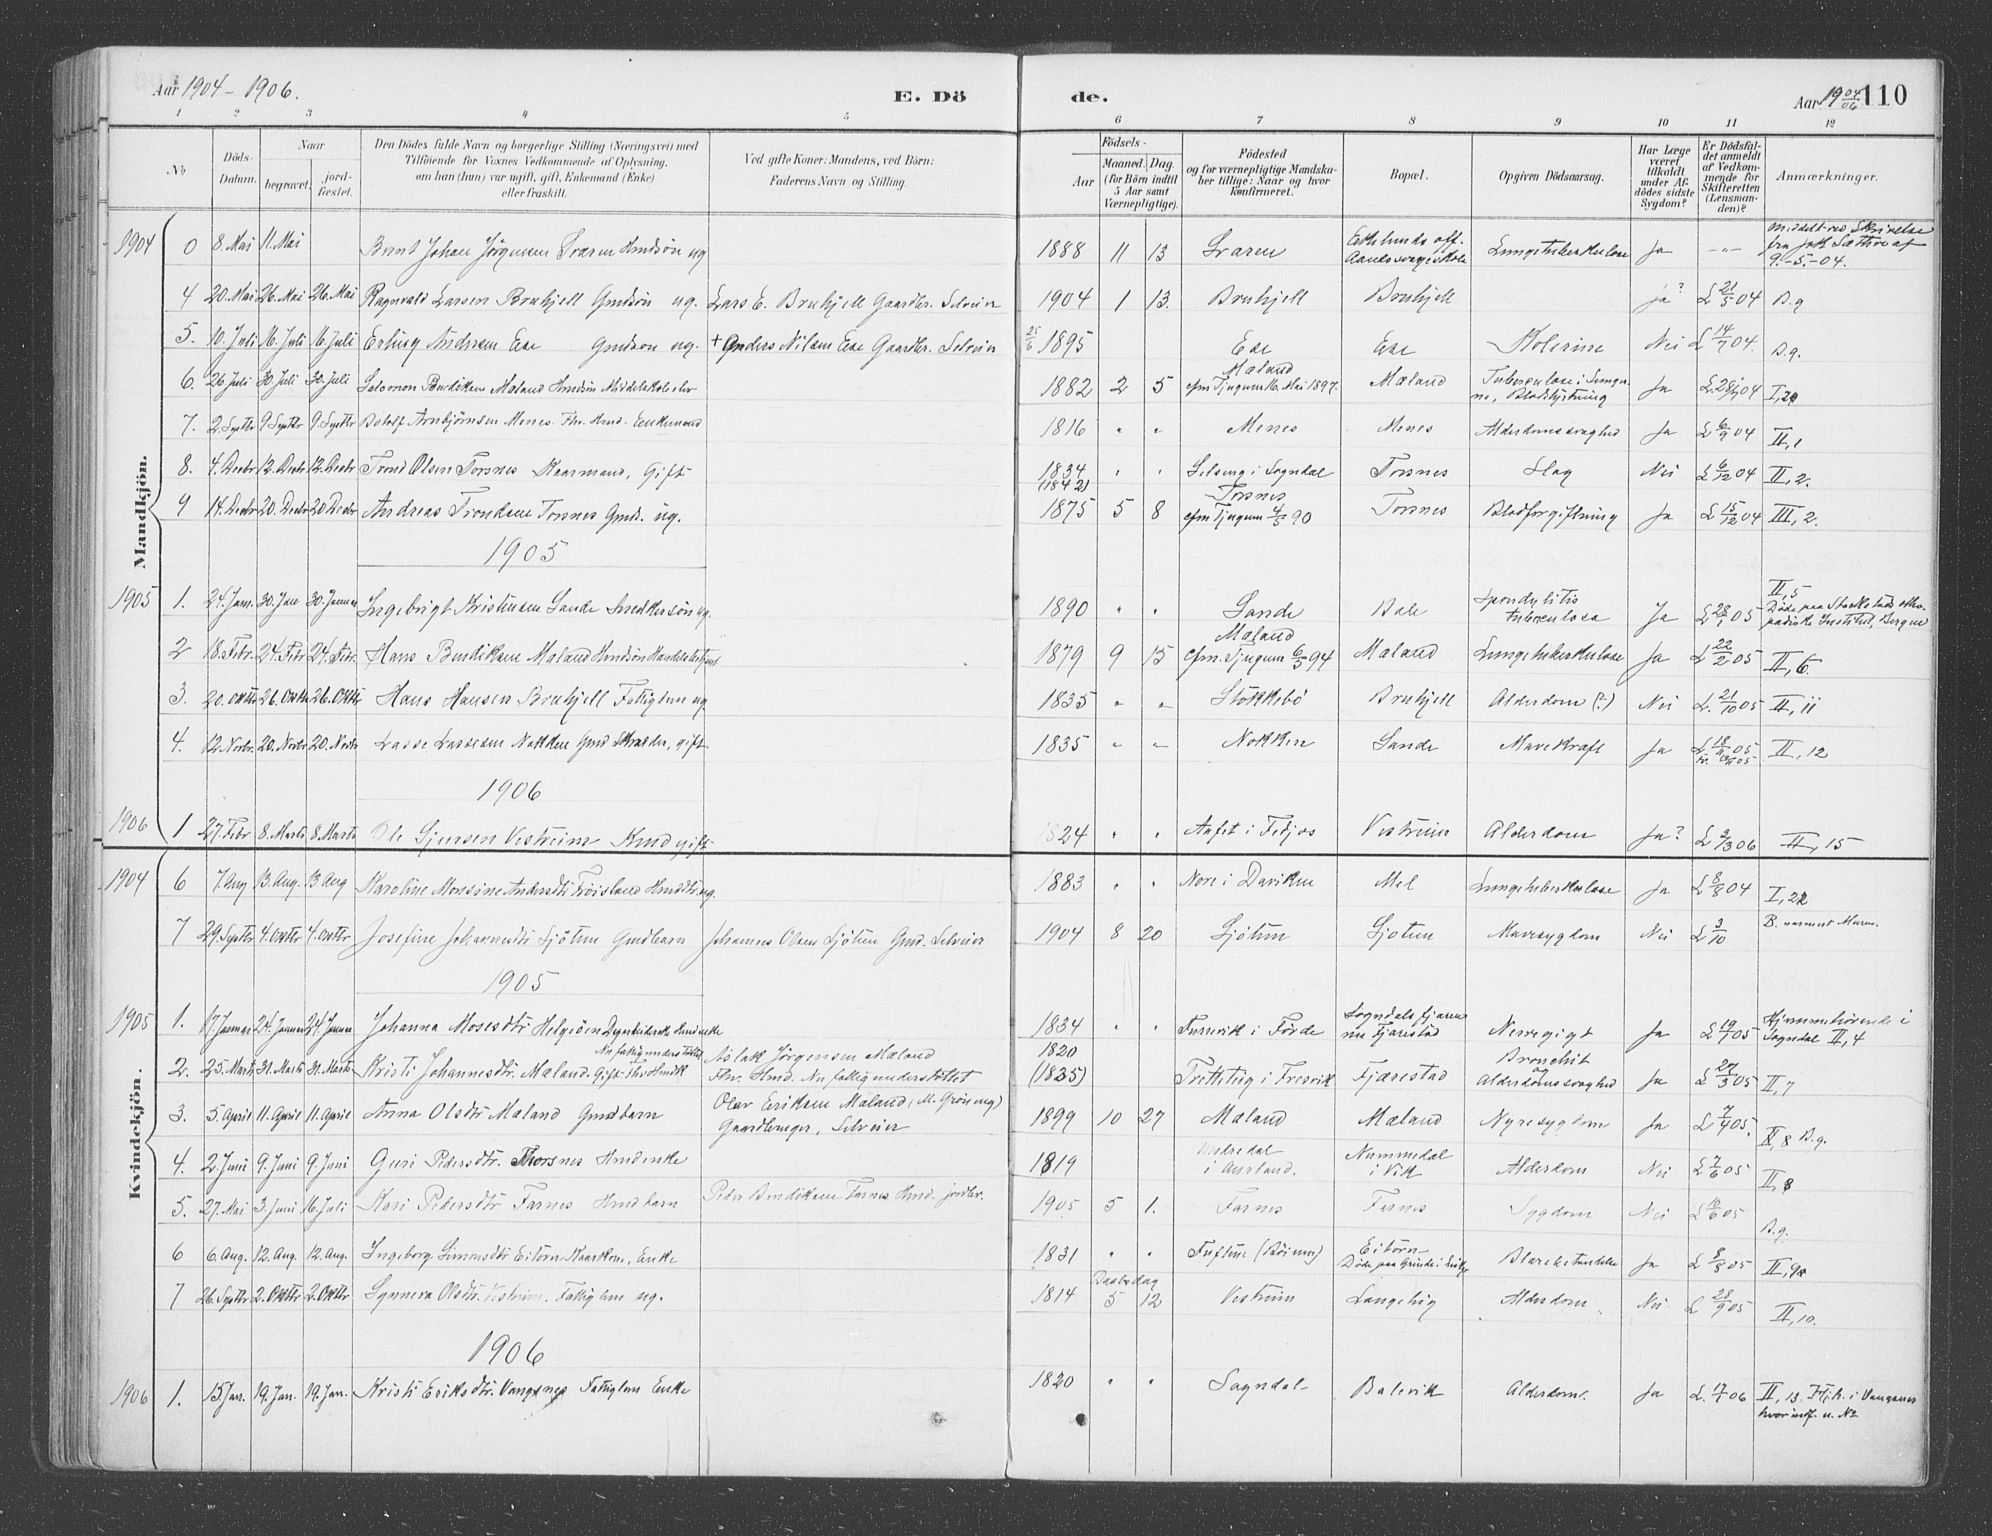 Aar 1904 - 1906. E. Dö de. Aar 19 04/06 110
1 2 3 4 5 6 7 8 9 10 11 12
No Döds-Datum. Naar begravet. jord-fæstet. Den Dödes fulde Navn og borgerlige Stilling (Næringsvei) med Tilföiende for Voxnes Vedkommende af Oplysning, om han (hun) var ugift, gift, Enkemand (Enke) eller fraskilt. Ved gifte Koner: Mandens, ved Börn: Faderens Navn og Stilling. Födsels- Aar Maaned. Dag. (for Börn indtil 5 Aar samt Værnepligtige). Födested og for værnepligtige Mandska-ber tillige: Naar og hvor konfirmeret. Bopæl. Opgiven Dödsaarsag. Har Læge været tilkaldt under Af-dödes sidste Sygdom? Er Dödsfal-det anmeldt af Vedkom-mende for Skifteretten (Lensman-den)? Anmærkninger.
Mandkjön.
1904 0 8. Mai 11. Mai Bernt Johan Jørgensen Svaren Hmdsön ug 1888 11 13 Svaren Lungetuberkulose Ja -"- Meddelt ved Skrivelse fra 9.-5.-04.
4 20. Mai 26. Mai 26. Mai Ragnvald Larsen Bruhjell Gmdsön ug. Lars E. Bruhjell Gaardbr. Selveier 1904 1 13. Bruhjell Bruhjell ja? L 21/5 04 B.g
5. 10. Juli 16. Juli 16 Juli Erling Andersen Ese Gmdson ug. + Anders Nilsen Ese Gaardbr. Selveier 25/6 1895 Ese Ese Kolerine Nei L 14/7 04. B.g.
6. 26 Juli 30. Juli 30. Juli Salomon Bendiksen Mæland Hmdsön Middelskoleelev 1882 2 5 Mæland cfm Tjugum 16. Mai 1897. Mæland Tuberkulose i Lunge-ne, Blodstyrtning Ja L. 28/7 04 I, 20
7. 2. Septbr 9 Septbr 9. Septbr Botolf Arnbjörnsen Menes. Fhv. Hmd. Enkemand 1816 " " Menes Menes Alderdomssvaghed Ja L 6/9 04 II, 1
8. 4. Decbr 12. Decbr 12. Decbr Trond Olsen Torsnes Kaarmand, Gift 1834 (1842) " " Selseng i Sogndal Torsnes Slag Nei L 6/12 04 II, 2.
9 14. Decbr 20. Decbr 20 Decbr Andreas Trondsen Torsnes Gmds. ug. 1875 5 8 Torsnes cfm Tjugum 4/5 90 Torsnes Blodforgiftning Ja L 15/12 04 III, 2.
1905
1905 1. 24. Jan. 30. Jan 30. Januar Ingebrigt Kristensen Sande Snedkersön ug. 1890 " " Sande Bale Spondylitis tuberculosa Ja L 28/1 05 II, 5 Döde paa Institut, Bergen
2 18. Febr. 24. Febr 24. Febr. Hans Bendiksen Mæland Hmdsön 1879 9 15 Mæland Cfm. Tjugum 6/5 94 Mæland Lungetuberkulose Ja L 22/2 05 II, 6.
3. 20. Oktbr 26. Oktbr 26. Oktbr Hans Hansen Bruhjell Fattiglem ug. 1835 " " Stokkebö Bruhjell Alderdom (?) Nei L. 21/10 05 II, 11
4. 12. Novbr. 20. Novbr 20. Novbr Lasse Lassesen Nokken Gmd Skrædder, gift. 1835 " " Nokken Sande Mavekræft Ja L 18/11 05 II, 12
1906
1906 1 27. Febr 8. Marts 8. Marts Ole Sjursen Vestreim Kmd gift. 1824 " " Aafet i Fedjos Vestreim Alderdom Ja? L 2/3 06 II, 15
Kvindekjön.
1904 6 7. Aug 13. Aug. 13 Aug Karoline Monsine Andersdtr Fröisland Hmddtr ug. 1883 " " Nore i Daviken Mel Lungetuberkulose Ja L 8/8 04 I, 22
7 29. Septbr 4. Oktbr 4. Oktbr Josefine Johannesdtr Sjötun Gmdbarn Johannes Olsen Sjötun Gmd. Selveier 1904 8 20 Sjötun Sjotun Mavesygdom Nei L 3/10 B.
1905
1905 1. 17. Januar 24. Januar 24. Januar Johanna Mosesdtr Helgeöen Hmdenke 1834 " " Furevik i Förde Sogndals Fjæren Nervegigt Ja L 19/1 05 Hjemmehörende i Sogndal II, 4
2. 25. Marts 31. Marts 31. Marts Kristi Johannesdtr. Mæland. Gift Aslak Jørgensen Mæland Fhv. Hmd. Nu fattigunderstöttet 1820 (1825) Tretteteig i Fresvik Fjærestad Bronchit og Alderdomssvaghed Ja L 27/3 05 II, 7
3. 5. April 11. April 11. April Anna Olsdtr Mæland Gmdbarn Olav Eriksen Mæland, Gaardbruger, Selveier 1899 10 27 Mæland Mæland Nyresygdom Ja L 7/4 05. II, 8 B.g.
4. 2. Juni 9. Juni 9. Juni Guri Pedersdtr. Thorsnes Hmdenke 1819 Undredal i Aurland. Nummedal i Vik Alderdom Nei L 7/6 05 II, 8
5. 27. Mai 3. Juni 16. Juli Kari Pedersdtr Farnes Hmdbarn Peder Bendiksen Farnes Hmd. jordbr. 1905 5 1. Farnes Farnes Sygdom Nei L 12/6 05 B.g.
6 6. Aug. 12. Aug. 12. Aug. Ingeborg Simonsdtr Eitorn Kaarkone, Enke 1831 " " Tuftene (Böium) Eitorn Döde paa Grinde i Blærebetændelse Ja L 8/8 05 II, 9
7 26. Septbr 2. Oktbr 2. Oktbr Synneva Olsdtr. Vestreim. Fattiglem ug. 1814 Daabsdag 5 12 Vestreim Langeteig Alderdom Nei L 28/9 05 II, 10.
1906
1906 1. 15. Jan. 19. Jan. 19. Jan. Kristi Eriksdtr. Vangsnes Fattiglem Enke 1820 " " Sogndal Balevik Alderdom. Ja L. 17/1 06 II, 13. i Vangsnes hvor indf. u. No